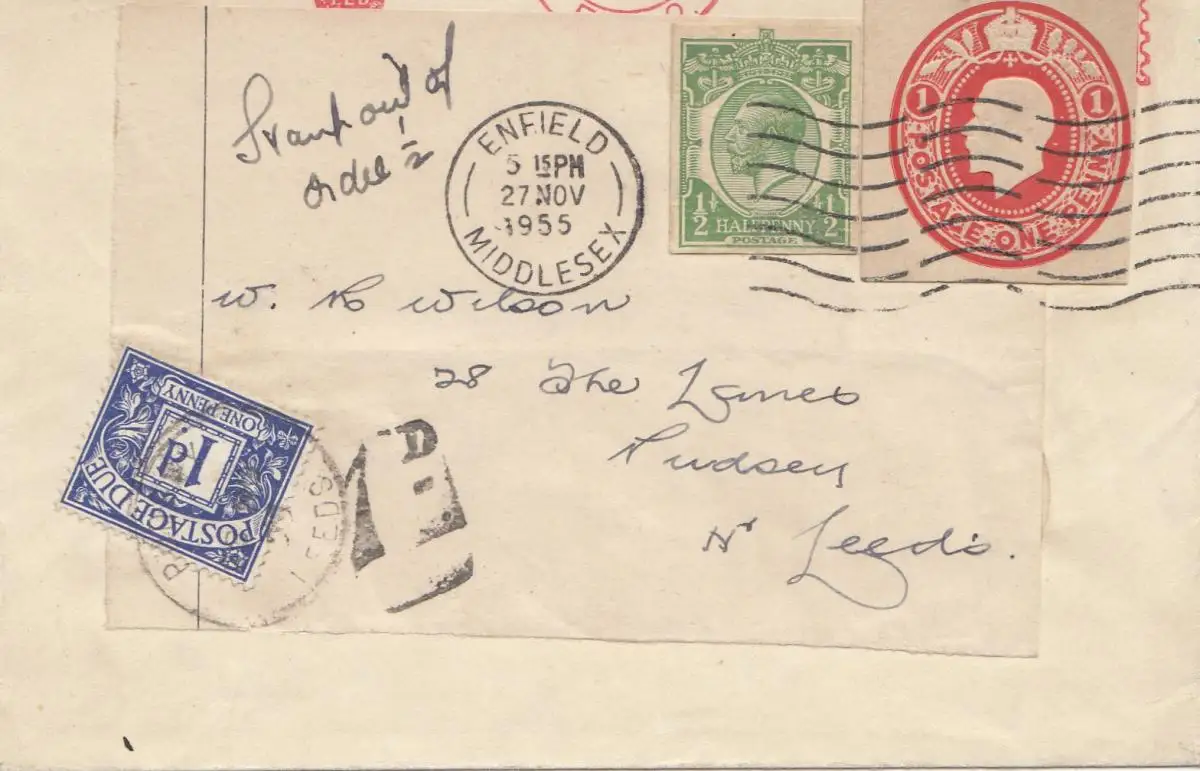 Stamp out of
order ½
ENFIELD
5 15PM
27 NOV
1955
MIDDLESEX
½ HALFPENNY ½
POSTAGE
1 1
POSTAGE·ONE·PENNY
W. R Wilson
28 The Lanes
Pudsey
Nr Leeds.
POSTAGE DUE
1d.
ONE PENNY
LEEDS